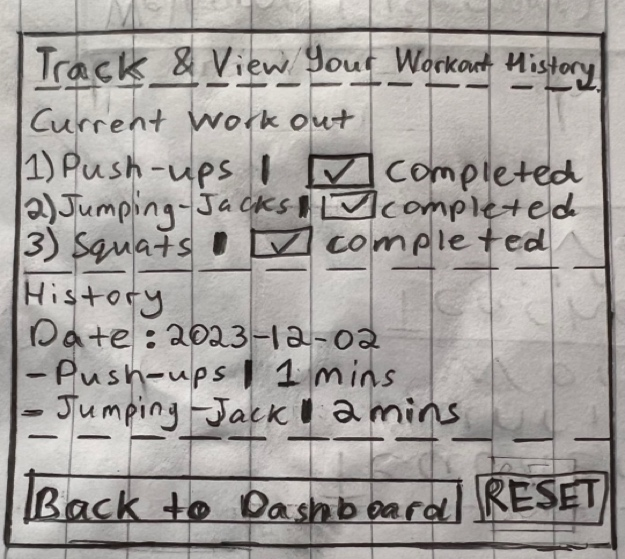 Track & View Your Workout History
Current Workout
1) Push-ups | ☑ completed
2) Jumping-Jacks | ☑ completed
3) Squats | ☑ completed
History
Date : 2023-12-02
- Push-ups | 1 mins
- Jumping-Jack | 2 mins
Back to Dashboard RESET